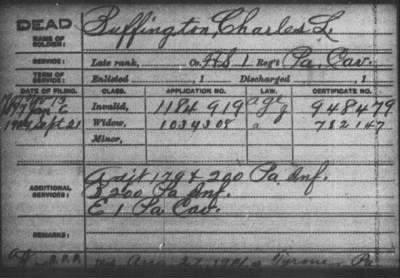 DEAD
NAME OF SOLDIER:
Buffington, Charles L.
SERVICE:
Late rank, Co. F&S 1 Reg't Pa. Cav.
TERM OF SERVICE:
Enlisted , 1 Discharged , 1
DATE OF FILING. CLASS. APPLICATION NO. LAW. CERTIFICATE NO.
Invalid, 1184919 948479
1904 Sept 21 Widow, 782147
Minor,
ADDITIONAL SERVICES:
Adjt 179 & 200 Pa. Inf.
D 200 Pa Inf.
E 1 Pa Cav.
REMARKS:
Aug 27, Tyrone, Pa